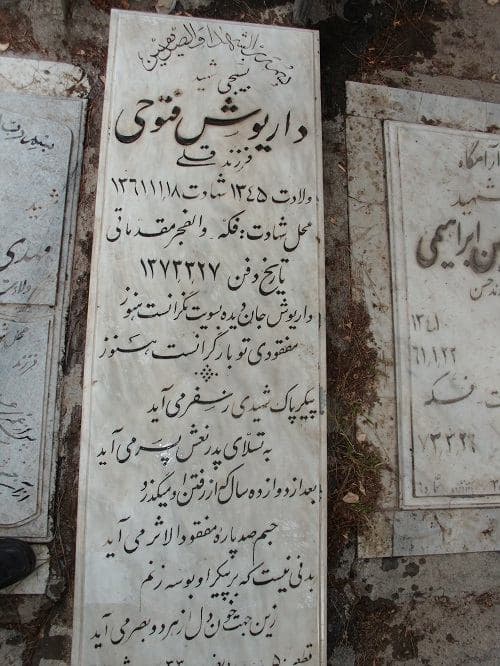 بسم رب الشهداء و الصدیقین
بسیجی شهید
داریوش فتوحی
فرزند قلی
ولادت ۱۳۴۵ شهادت ۱۳۶۱/۱۱/۱۸
محل شهادت: فکه - والفجر مقدماتی
تاریخ دفن ۱۳۷۳/۳/۲۷
داریوش جان دیده بسویت نگرانست هنوز
مفقودی تو بار گرانست هنوز
پیکر پاک شهیدی ز سفر می آید
به تسلای پدر نعش پسر می آید
بعد از دوازده سال که از رفتن او میگذرد
جسم صد پاره مفقود الاثر می آید
بدنی نیست که بر پیکر او بوسه زنم
زین جهت خون دل از هر دو بصر می آید
قطعه
آرامگاه
شهید
ابراهیمی
فرزند حسن
۱۳۴۰
۶۱/۱/۲۲
فکه
۷۳/۳/۲۶
مهدی
ولادت